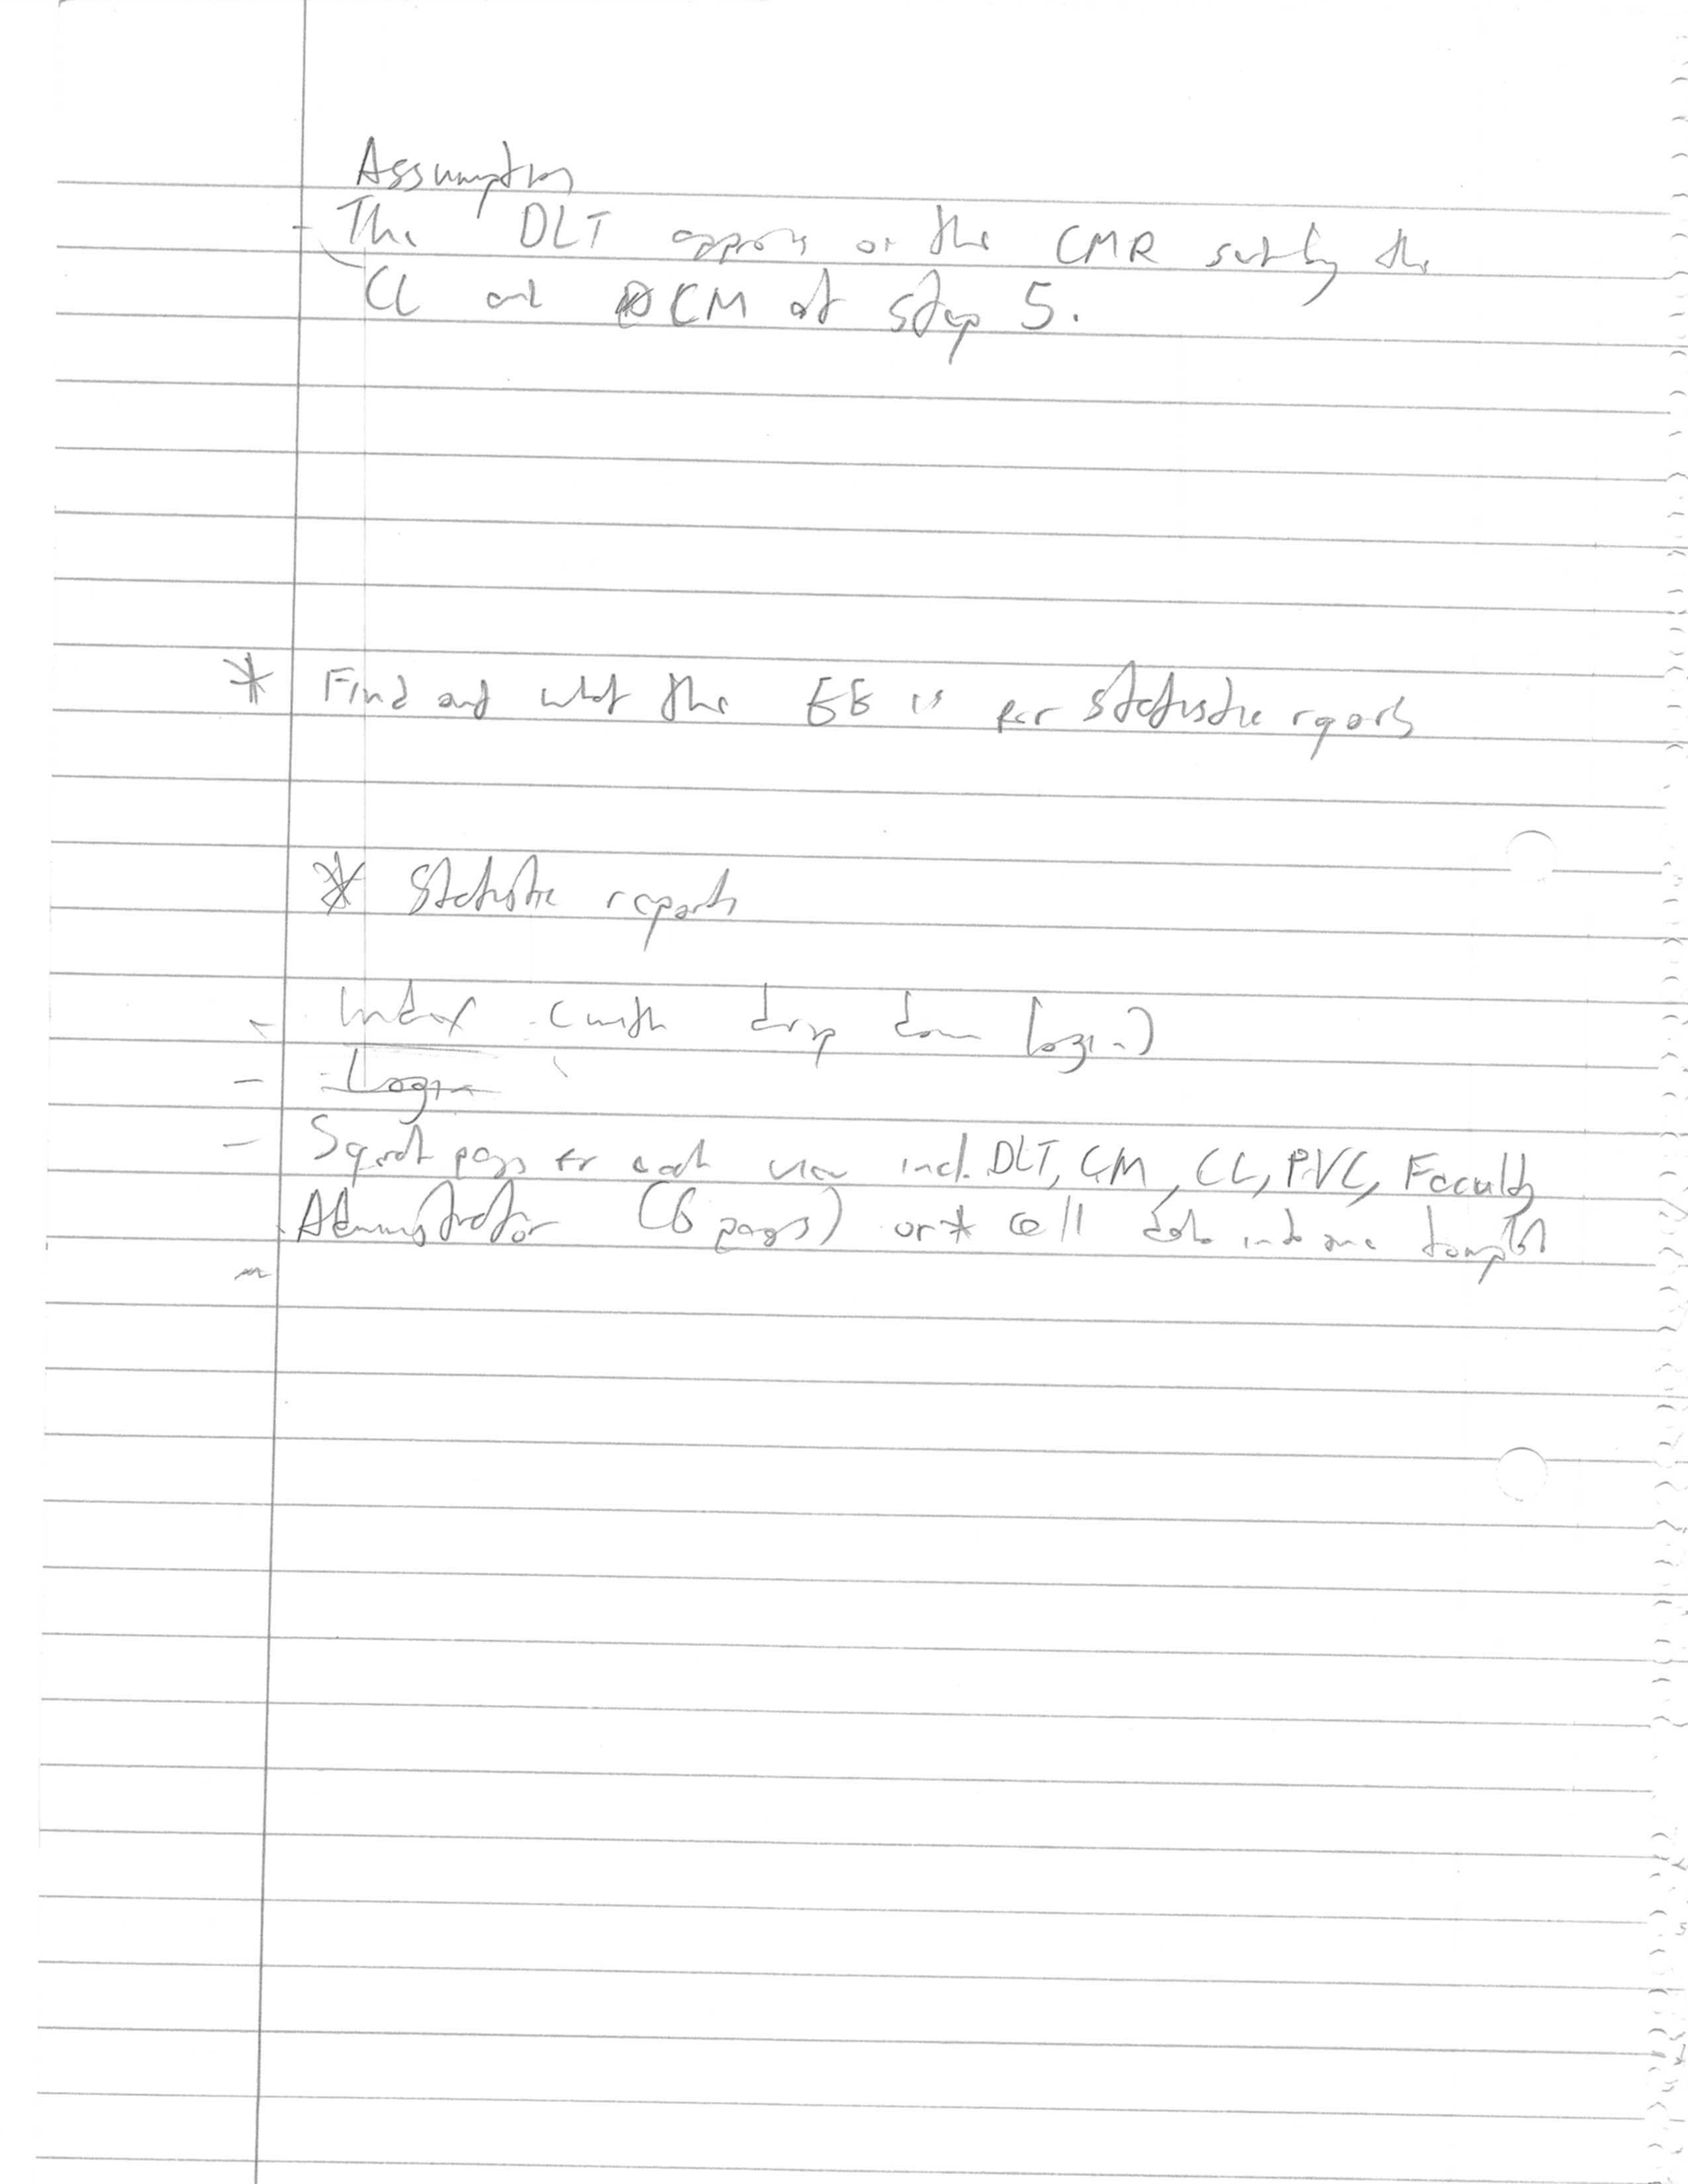 Assumption
- The DLT approves on the CMR sent by the
CL and CM at step 5.
* Find out what the EE is for statistic reports
* Statistic reports
- Index (with drop down login)
- Login
- Seperate pages for each view incl. DLT, CM, CL, PVC, Faculty
Administrator (6 pages) or * call data into one template